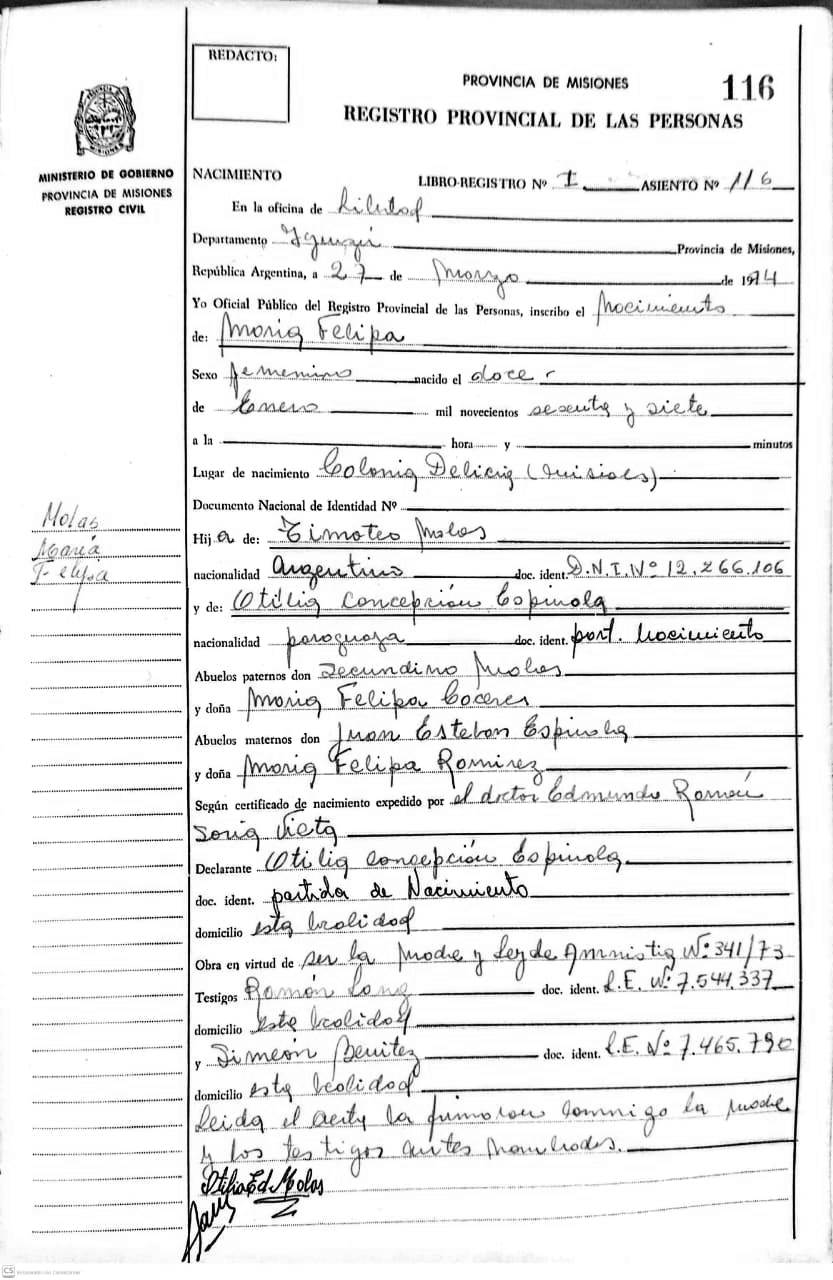 REDACTO:
PROVINCIA DE MISIONES
116
REGISTRO PROVINCIAL DE LAS PERSONAS
MINISTERIO DE GOBIERNO
PROVINCIA DE MISIONES
REGISTRO CIVIL
NACIMIENTO LIBRO-REGISTRO Nº I ASIENTO Nº 116
En la oficina de Libertad
Departamento Iguazú Provincia de Misiones,
República Argentina, a 27 de Marzo de 1974
Yo Oficial Público del Registro Provincial de las Personas, inscribo el Nacimiento
de: Maria Felipa
Sexo femenino nacido el doce
de Enero mil novecientos sesenta y siete
a la hora y minutos
Lugar de nacimiento Colonia Delicia (Misiones)
Documento Nacional de Identidad Nº
Molas
María
Felipa
Hija de: Timoteo Molas
nacionalidad Argentino doc. ident. D.N.I. Nº 12.266.106
y de: Otilia Concepción Espinola
nacionalidad paraguaya doc. ident. part. Nacimiento
Abuelos paternos don Secundino Molas
y doña Maria Felipa Coceres
Abuelos maternos don Juan Esteban Espinola
y doña Maria Felipa Ramirez
Según certificado de nacimiento expedido por el doctor Edmundo Román
Soria Vieta
Declarante Otilia Concepción Espinola
doc. ident. partida de Nacimiento
domicilio esta localidad
Obra en virtud de ser la Madre y Ley de Amnistia Nº 341/73
Testigos Ramón doc. ident. L.E. Nº 7.544.337
domicilio esta localidad
y Simeón Benitez doc. ident. L.E. Nº 7.465.790
domicilio esta localidad
Leida el acta la firmaron conmigo la madre
y los testigos antes nombrados.
Otilia E d Molas
CS